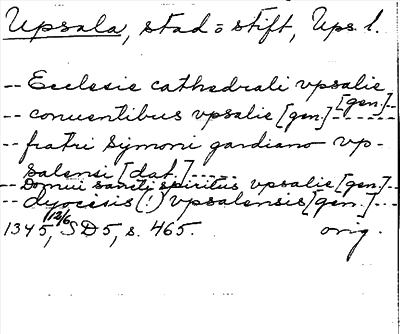 Upsala, stad o stift, Ups. l.
-- Ecclesie cathedrali vpsalie [gen.]--
-- conuentibus vpsalie [gen.]------
-- fratri symoni gardiano vp-
salensi [dat.]-----
-- Domui sancti spiritus vpsalie [gen.]--
-- dyocesis (!) vpsalensis [gen.]---
1345 12/6, SD5, s. 465. orig.